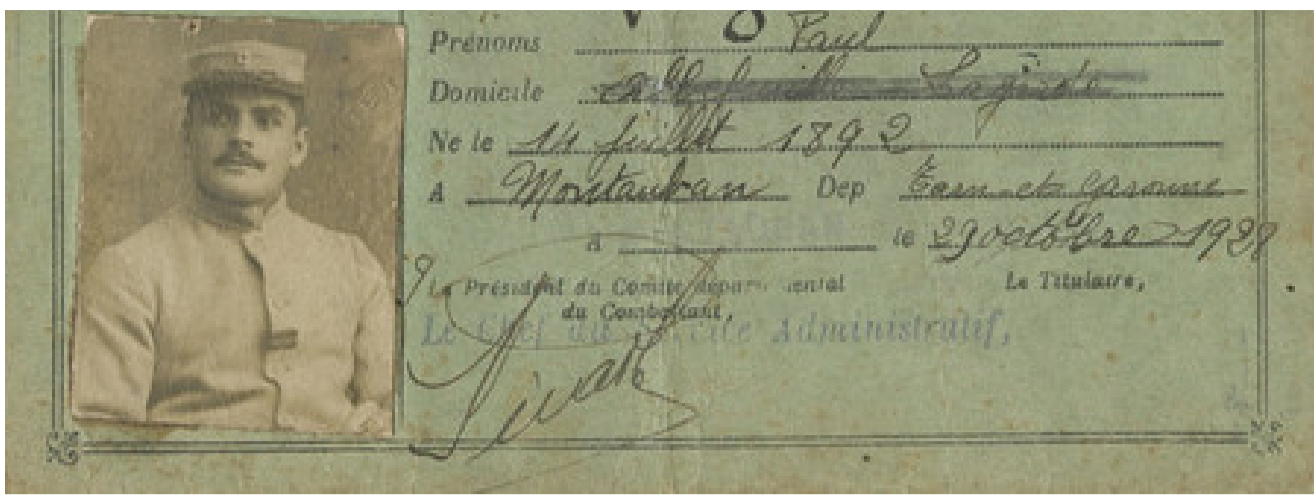 Prénoms Paul
Domicile
Né le 14 juillet 1892
A Montauban Dep Tarn et Garonne
A le 29 octobre 1928
Le Président du Comité départemental Le Titulaire,
du Combattant,
Le Chef du Service Administratif,